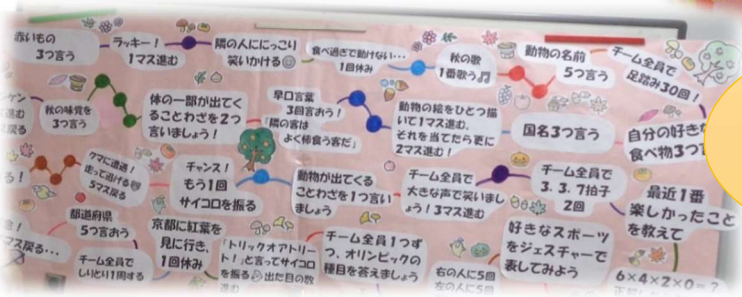 赤いもの
3つ言う
ラッキー！
1マス進む
隣の人ににっこり
笑いかける
食べ過ぎで動けない…
1回休み
秋の歌
1番歌う
動物の名前
5つ言う
チーム全員で
足踏み30回！
秋の味覚を
3つ言う
体の一部が出てく
ることわざを2つ
言いましょう！
早口言葉
3回言おう！
「隣の客は
よく柿食う客だ」
動物の絵をひとつ描
いて1マス進む。
それを当てたら更に
2マス進む！
国名3つ言う
自分の好き
食べ物3つ
クマに遭遇！
走って逃げる
5マス戻る
チャンス！
もう1回
サイコロを振る
動物が出てくる
ことわざを1つ言い
ましょう
チーム全員で
大きな声で笑いまし
ょう！3マス進む
チーム全員で
3．3．7拍子
2回
最近1番
楽しかったこと
を教えて
都道府県
5つ言おう
チーム全員で
しりとり1周する
京都に紅葉を
見に行き、
1回休み
「トリックオアトリー
ト！」と言ってサイコロ
を振る 出た目の数
チーム全員1つず
つ、オリンピックの
種目を答えましょう
右の人に5回
左の人に5回
好きなスポーツ
をジェスチャーで
表してみよう
6×4×2×0＝？